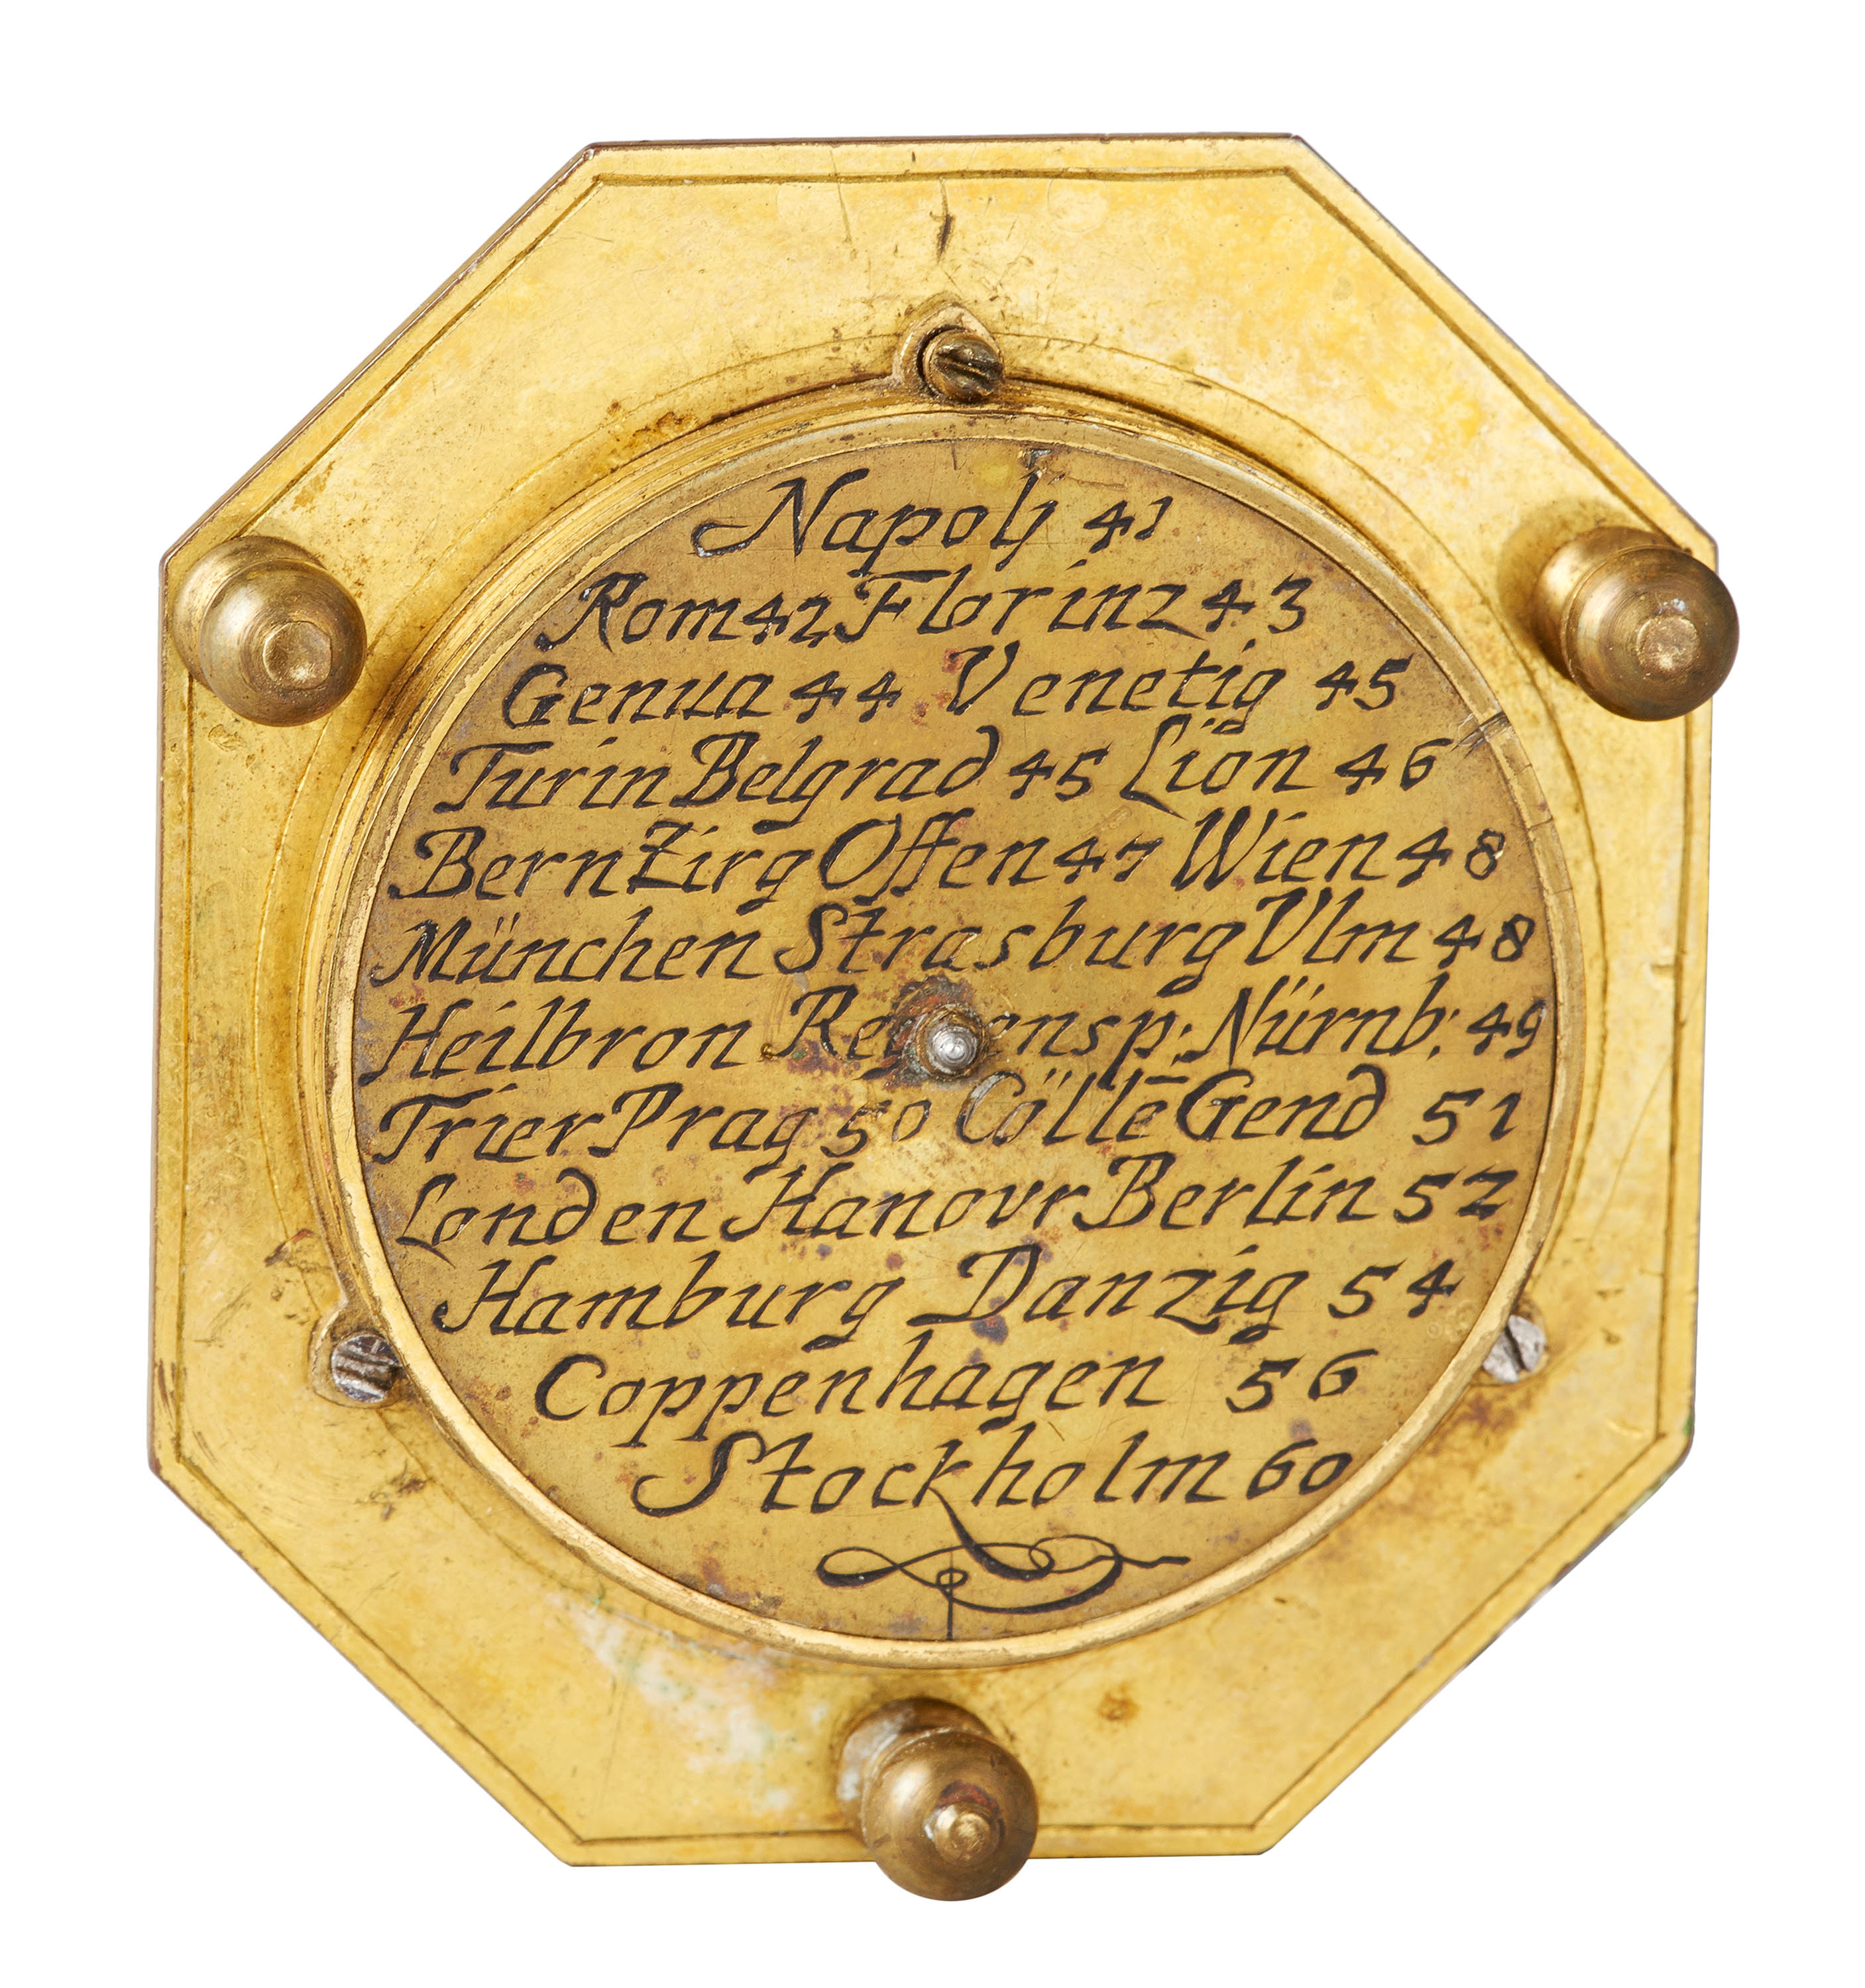 Napolj 41
Rom 42 Florinz 43
Genua 44 Venetig 45
Turin Belgrad 45 Lion 46
Bern Zirg Offen 47 Wien 48
München Strasburg Ulm 48
Heilbron Regensp: Nürnb: 49
Trier Prag 50 Cöllē Gend 51
Londen Hanovr Berlin 52
Hamburg Danzig 54
Coppenhagen 56
Stockholm 60